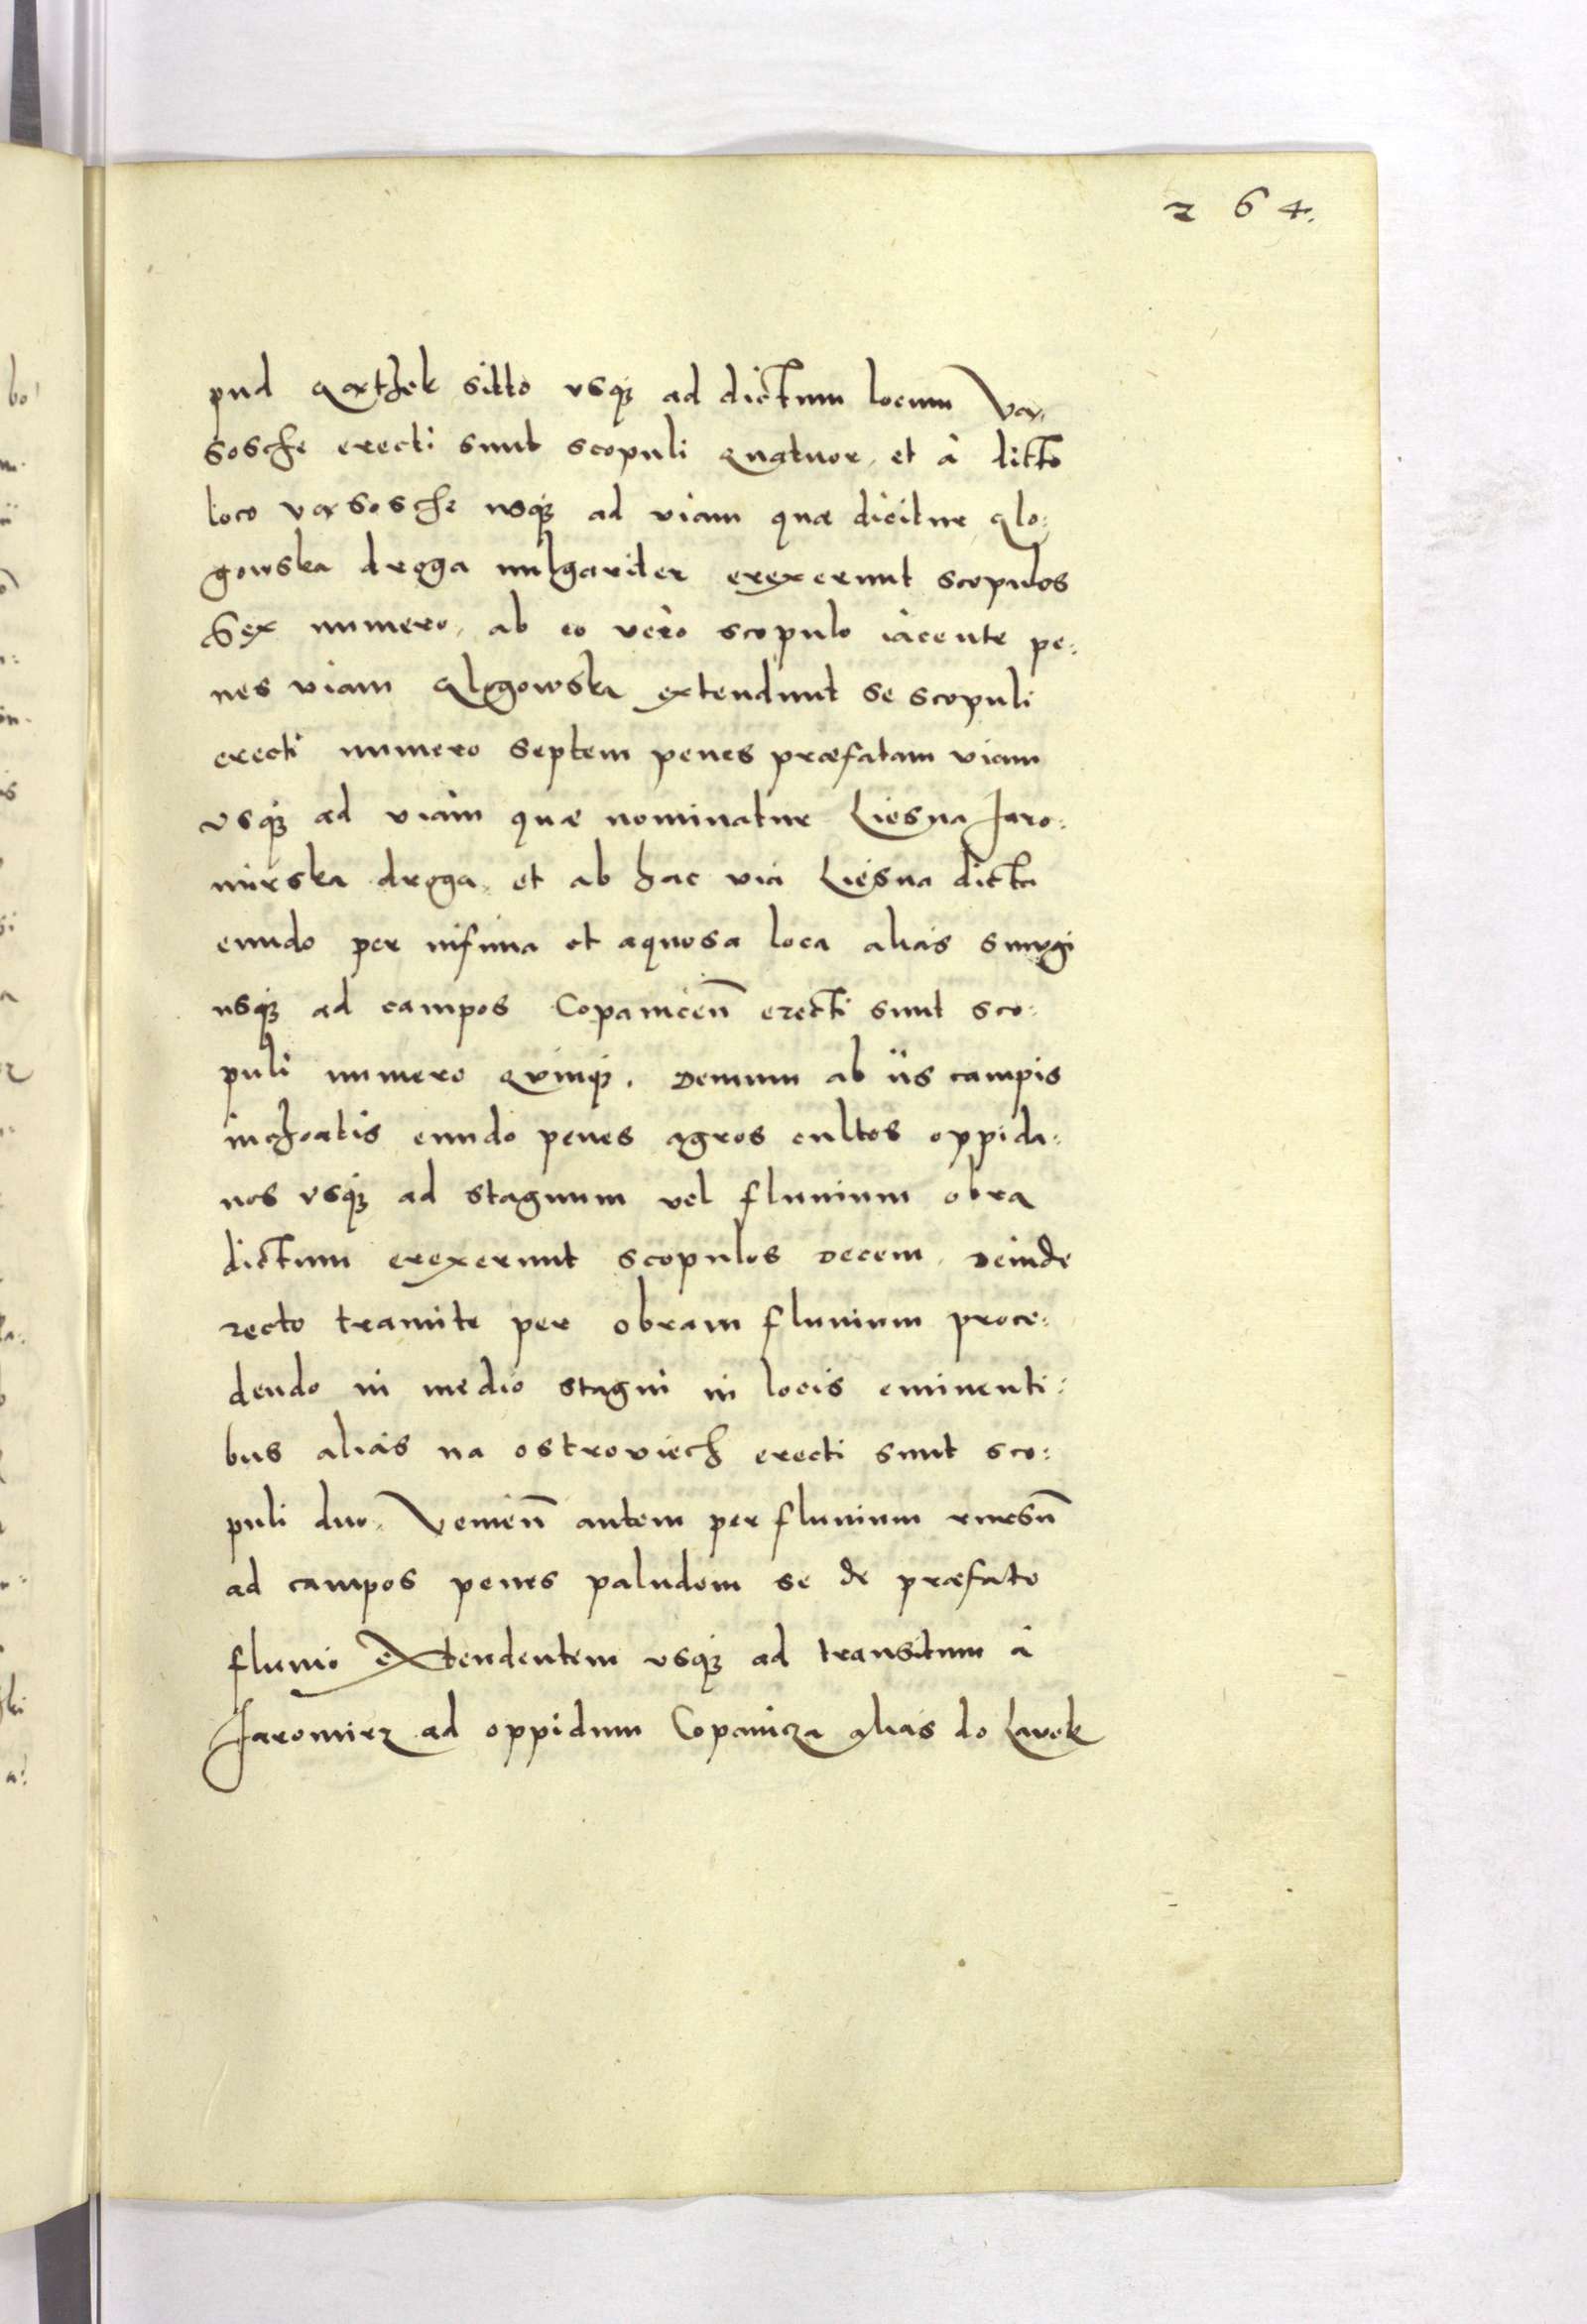 264.
pud Garthek sitto vsq₃ ad dictum locum Va,
sosche erecti sunt scopuli quatuor, et à ditto
loco vasosche usq₃ ad viam quæ dicitur Glo:
gowska droga uulgariter erexerunt scopulos
Sex numero, ab eo vero scopulo iacente pe:
nes viam Glogowska extendunt se scopuli
erecti numero septem penes præfatam viam
vsq₃ ad viam quæ nominatur Liesna Jaro:
mirska droga, et ab hac via Liesna dicta
eundo per infima et aquosa loca alias smugi
usq₃ ad campos Copanicen̄ erecti sunt sco:
puli numero quinq₃. Demum ab iis campis
inchoatis eundo penes agros cultos oppida:
nos vsq₃ ad stagnum vel fluuium obra
dictum erexerunt scopulos Decem, Deinde
recto tramite per obram fluuium proce:
dendo in medio stagni in locis eminenti:
bus alias na ostroviech erecti sunt sco:
puli duo, Venien̄ autem per fluuium rursū
ad campos penes paludem se de præfato
fluuio extendentem vsq₃ ad transitum à
Jaromirz ad oppidum Copanicza alias do Lawek